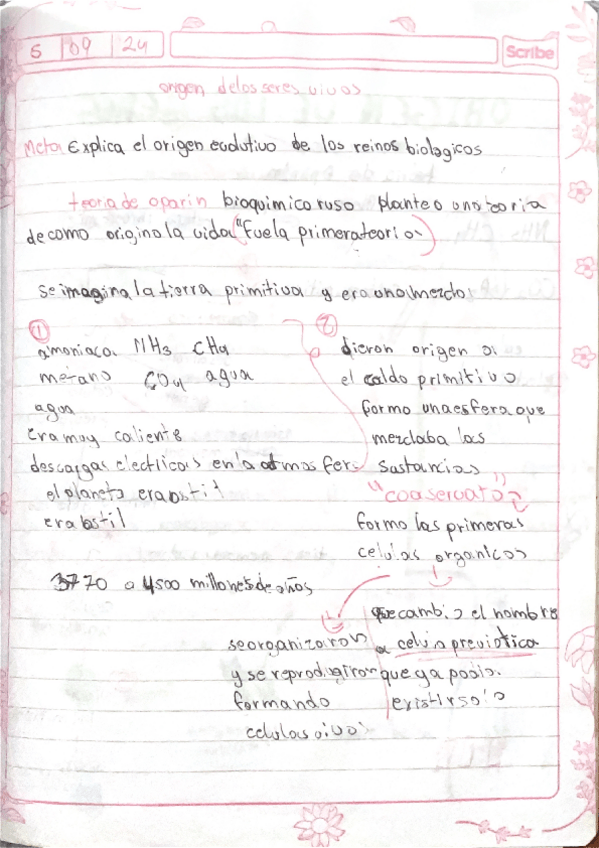 5 | 09 | 24
Scribe
origen delos seres vivos
Meta Explica el origen evolutivo de los reinos biologicos
teoria de oparin bioquimico ruso planteo una teoria
de como origino la vida "Fue la primera teoria
se imagina la tierra primitiva y era una mezcla
①
amoniaco NH3 CH4
metano CO4 agua
agua
era muy caliente
descargas electricas en la atmosfera
el planeta era ostil
era ostil
3770 a 4500 millones de años
②
dieron origen a
el caldo primitivo
formo una esfera que
mezclaba las
sustancias
"coaservato"
formo las primeras
celulas organicas
se organizaron
y se reprodugiron
formando
celulas vivas
que cambio el nombre
a celula previotica
que ya podia
existir sola